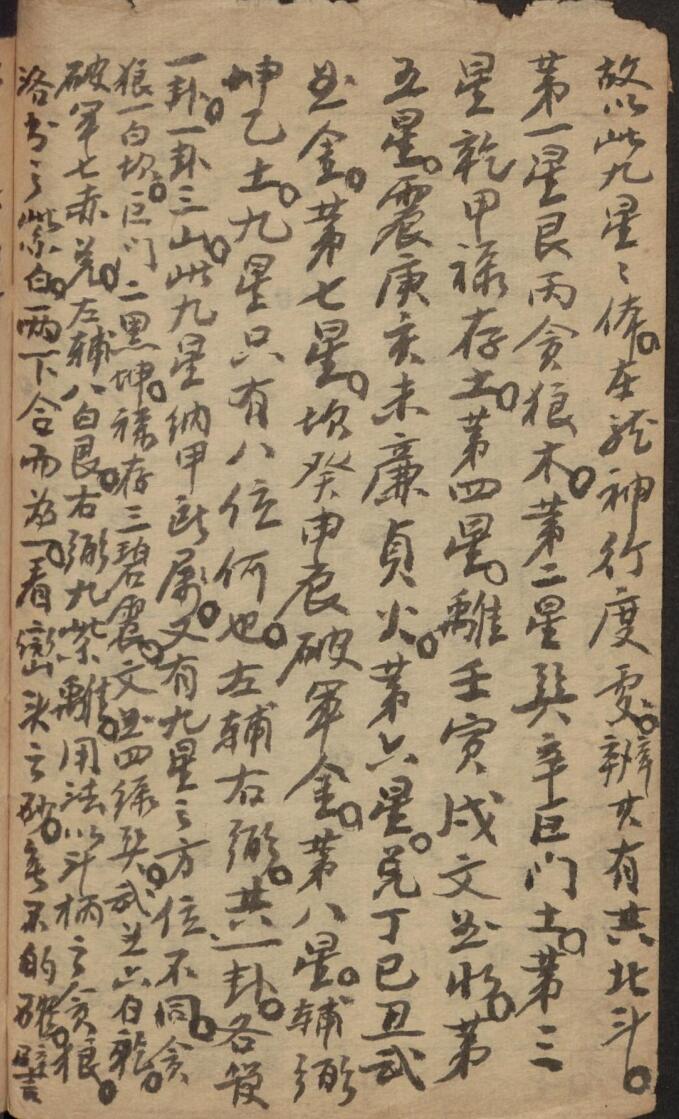 故以此九星〻体。在龍神行度处。辨其有共北斗。
第一星艮丙貪狼木。第二星巽辛巨门土。第三
星乾甲祿存土。第四星。離壬寅戌文曲水。第
五星。震庚亥未廉貞火。第六星。兑丁巳丑武
曲金。第七星。坎癸申辰破軍金。第八星。輔弼
坤乙土。九星只有八位何也。左輔右弼。共一卦。各管
一卦。一卦三山。此九星納甲所属。又有九星之方位不同。貪
狼一白坎。巨门二黑坤。祿存三碧震。文曲四绿巽。武曲六白乾。
破軍七赤兑。左輔八白艮。右弼九紫離。用法以斗柄之貪狼。
洛书之紫白。两下合而为一。看巒头之砂。無不的確。譬